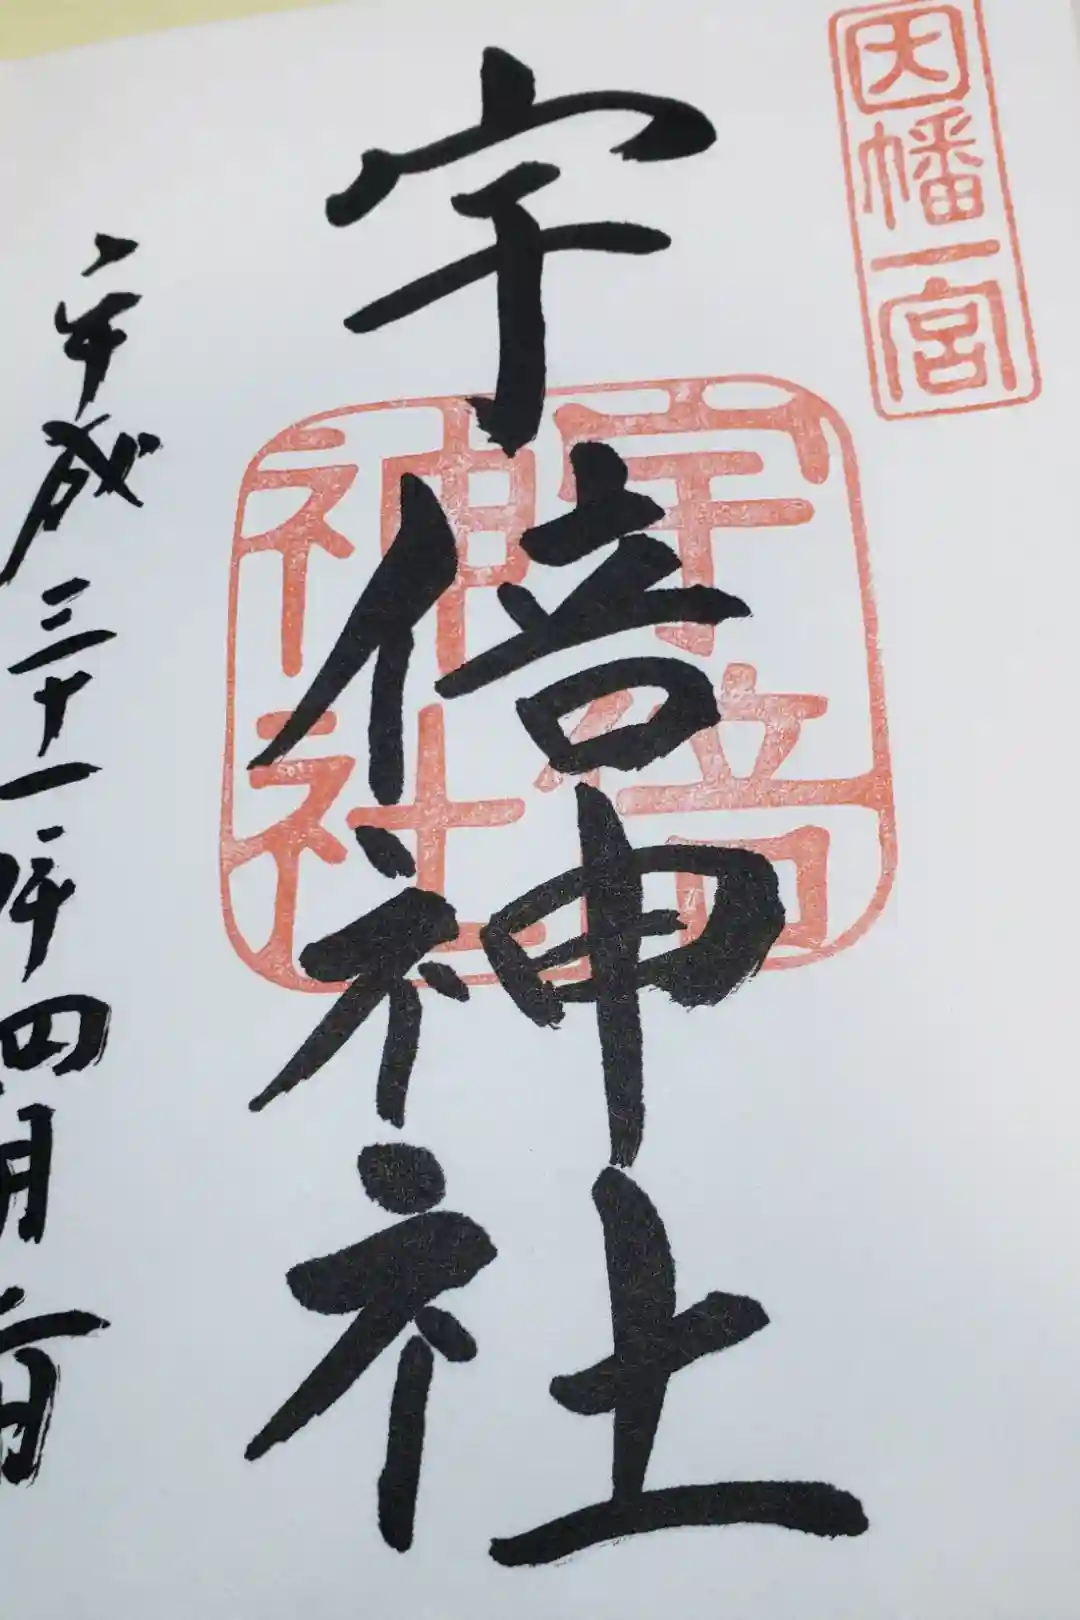 因幡一宮
宇倍神社
宇倍
神社
平成三十一年四月一日